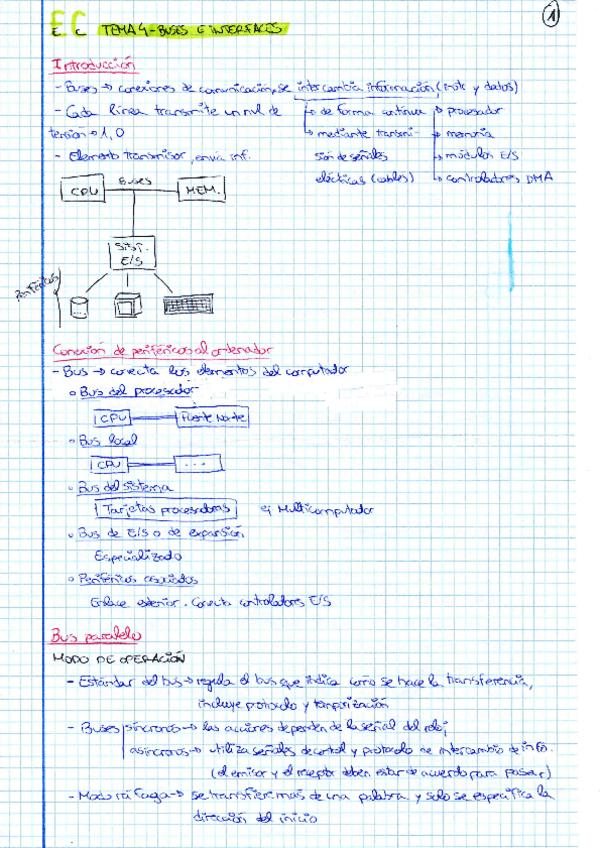 EC
E C TEMA 4 - BUSES E INTERFACES
1
Introducción
- Buses → conexiones de comunicación, se intercambia información (instr y datos)
- Cada línea transmite un nivel de tensión → 1, 0
→ de forma continua
→ mediante transmisión de señales eléctricas (cables)
→ procesador
→ memoria
→ módulos E/S
→ controladores DMA
- Elemento transmisor, envía inf.
CPU
Buses
MEM.
SIST. E/S
Periféricos
Conexión de periféricos al ordenador
- Bus → conecta los elementos del computador
o Bus del procesador
CPU
Puente Norte
o Bus local
CPU
...
o Bus del sistema
Tarjetas procesadoras
ej Multicomputador
o Bus de E/S o de expansión
Especializado
o Periféricos asociados
Enlace exterior. Conecta controladores E/S
Bus paralelo
MODO DE OPERACIÓN
- Estándar del bus → regula el bus que indica como se hace la transferencia,
incluye protocolo y temporización
- Buses síncronos → las acciones dependen de la señal del reloj
asíncronos → utiliza señales de control y protocolo de intercambio de info.
(el emisor y el receptor deben estar de acuerdo para pasar)
- Modo ráfaga → se transfiere más de una palabra y solo se especifica la
dirección del inicio